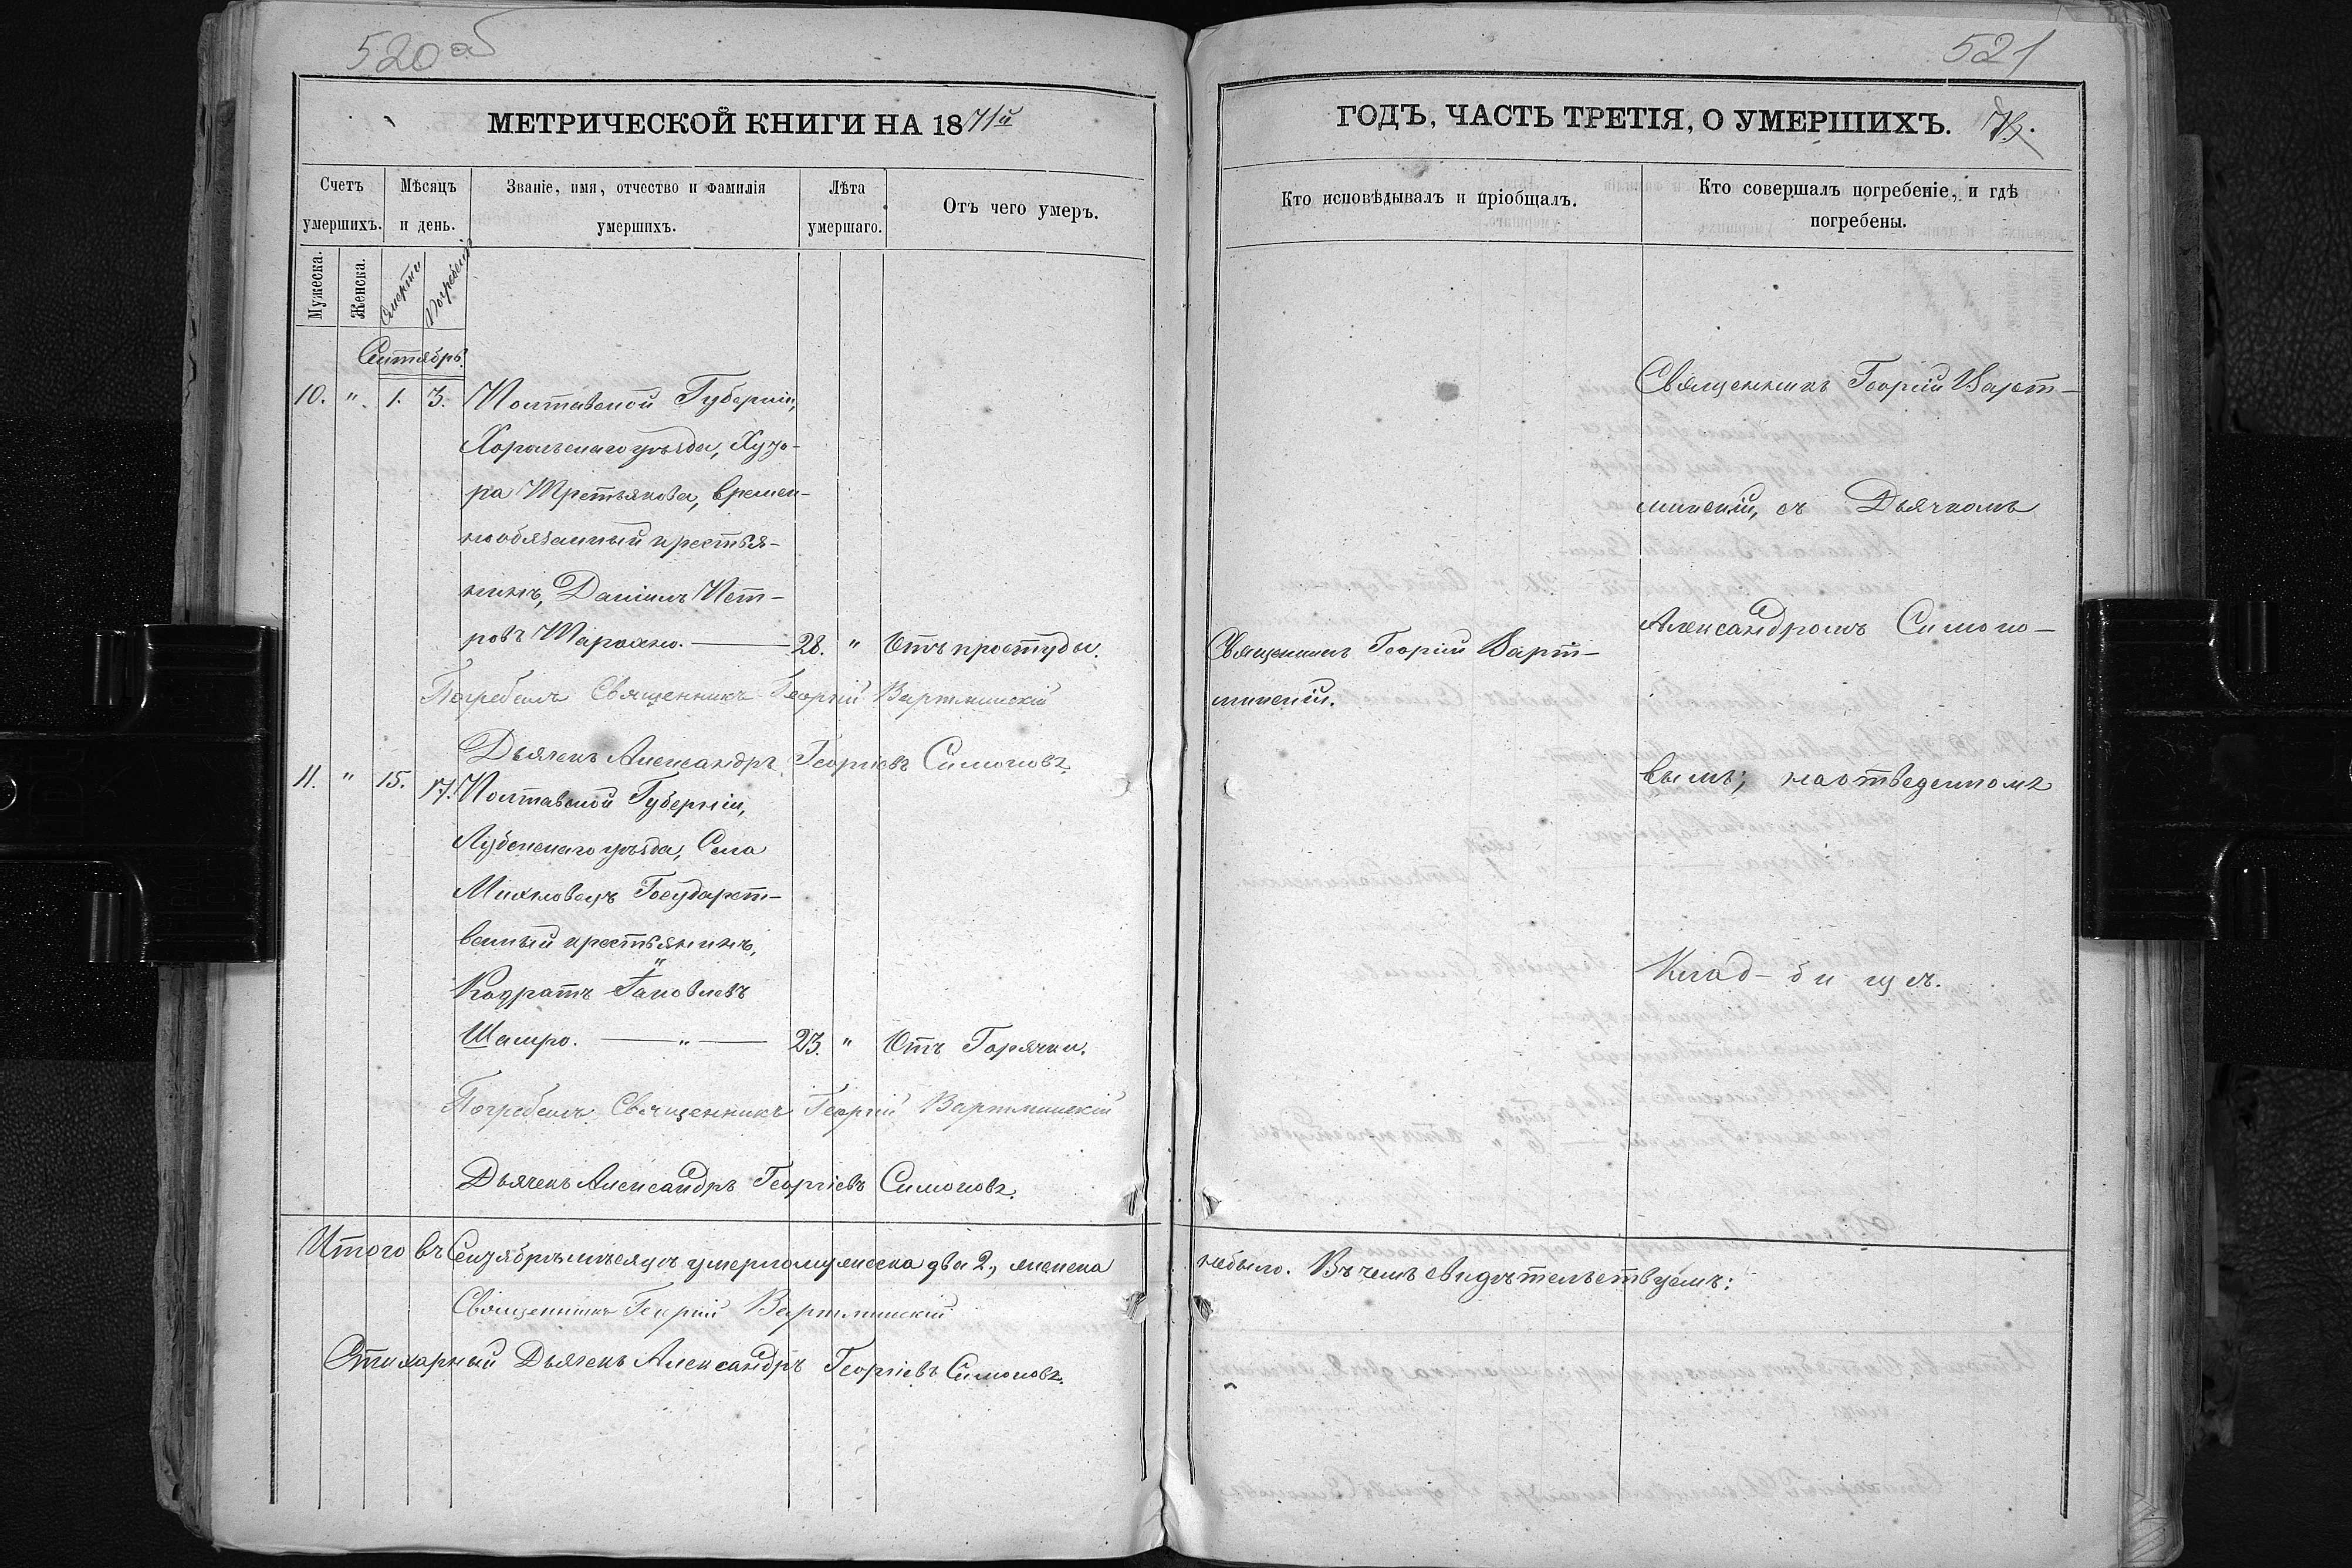 520 об
МЕТРИЧЕСКОЙ КНИГИ НА 1871й
Счетъ умершихъ.
Мѣсяцъ и день.
Званіе, имя, отчество и фамилія умершихъ.
Лѣта умершаго.
Отъ чего умеръ.
Мужеска.
Женска.
Смерти
Погребенія
Сентябрь.
10. ". 1. 3. Полтавской Губерніи,
Хорольскаго уѣзда, Хуто-
ра Третьякова, времен-
нообязанный крестья-
нинъ, Даніилъ Пет-
ровъ 28. " Отъ простуды.
Погребалъ Священникъ Георгій Вартминскій
Дьячекъ Александръ Георгіевъ Симоновъ.
11. " 15. 17. Полтавской Губерніи,
Лубенскаго уѣзда, Села
Государст-
венный крестьянинъ,
Кодратъ Яковлевъ
23. " Отъ Горячки.
Погребалъ Священникъ Георгій Вартминскій
Дьячекъ Александръ Георгіевъ Симоновъ.
Итого въ Сентябрѣ мѣсяцѣ умерло мужеска два 2, женска
Священникъ Георгій Вартминскій
Стихарный Дьячекъ Александръ Георгіевъ Симоновъ.
521
ГОДЪ, ЧАСТЬ ТРЕТІЯ, О УМЕРШИХЪ.
Кто исповѣдывалъ и пріобщалъ.
Кто совершалъ погребеніе, и гдѣ погребены.
Священникъ Георгій Варт-
минскій.
Священникъ Георгій Варт-
минскій, съ Дьячкомъ
Александромъ Симоно-
вымъ; на отведенномъ
Клад-бищѣ.
небыло. Въ чемъ свидѣтельствуемъ: